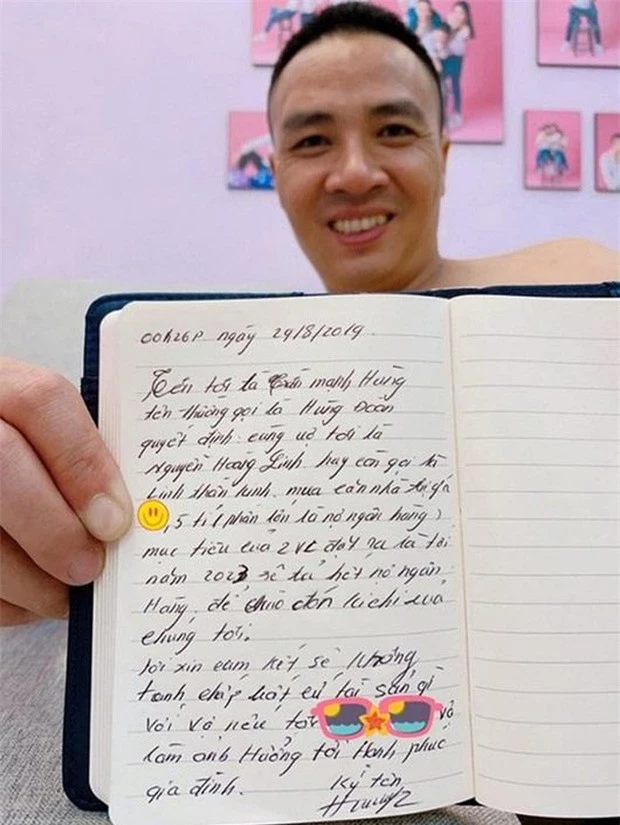 00h26p ngày 29/8/2019.
Tên tôi là Trần mạnh Hùng
tên thường gọi là Hùng Đoàn
quyết định. cùng vợ tôi là
Nguyễn Hoàng Linh hay còn gọi là
Linh thần kinh. mua căn nhà trị giá
,5 tỉ (phần lớn là nợ ngân hàng)
mục tiêu của 2VC đặt ra là tới
năm 2023 sẽ trả hết nợ ngân
Hàng, để chào đón kichi của
chúng tôi.
tôi xin cam kết sẽ không
tranh chấp bất cứ tài sản gì
với vợ nếu tôi và
làm ảnh Hưởng tới Hạnh phúc
gia đình. Ký tên